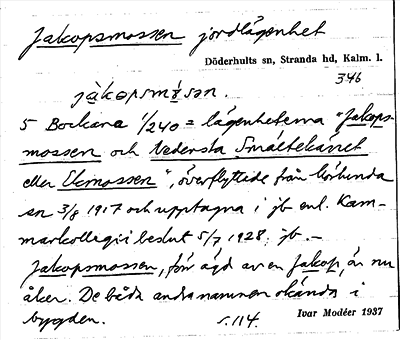 Jakopsmossen jordlägenhet
Döderhults sn, Stranda hd, Kalm. l.
346
jàkopsmósən.
5 Bockara 1/240 = lägenheterna "Jakops-
mossen och Nedersta Småltekärret
eller Ekmossen", överflyttade från
sn 3/8 1917 och upptagna i jb enl. Kam-
markollegii beslut 5/7 1928. jb. –
Jakopsmossen, förr ägd av en Jakop, är nu
åker. De båda andra namnen okända i
bygden. s. 114.
Ivar Modéer 1937